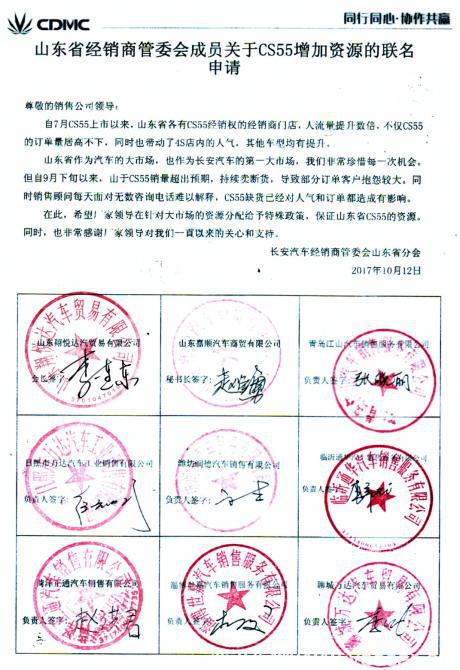 CDMC
同行同心·协作共赢
山东省经销商管委会成员关于CS55增加资源的联名
申请
尊敬的销售公司领导：
自7月CS55上市以来，山东省各有CS55经销权的经销商门店，人流量提升数倍，不仅CS55
的订单量居高不下，同时也带动了4S店内的人气，其他车型均有提升。
山东省作为汽车的大市场，也作为长安汽车的第一大市场，我们非常珍惜每一次机会。
但自9月下旬以来，由于CS55销量超出预期，持续卖断货，导致部分订单客户抱怨较大。同
时销售顾问每天面对无数咨询电话难以解释，CS55缺货已经对人气和订单都造成有影响。
在此，希望厂家领导在针对大市场的资源分配给予特殊政策，保证山东省CS55的资源。
同时，也非常感谢厂家领导对我们一直以来的关心和支持。
长安汽车经销商管委会山东省分会
2017年10月12日
山东翔悦达汽车贸易有限公司
会长签字：
山东嘉顺汽车商贸有限公司
秘书长签字：
青岛江山汽车销售服务有限公司
负责人签字：
日照市万达汽车工业销售有限公司
负责人签字：
潍坊润德汽车销售有限公司
负责人签字：
临沂通华汽车销售服务有限公司
负责人签字：
菏泽正通汽车销售有限公司
负责人签字：
淄博世嘉汽车销售服务有限公司
负责人签字：
聊城万达汽车贸易有限公司
负责人签字：